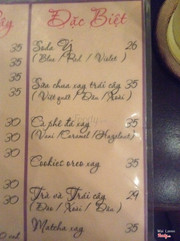 Đặc Biệt
35 Soda Ý 26
35 (Blue / Red / Violet)
35
35 Sữa chua xay trái cây 35
(Việt quất / Dâu / Xoài)
30 Cà phê đá xay 35
30 (Vani / Caramel / Hazelnut)
30
30 Cookies oreo xay 35
30
30 Trà và Trái cây 29
(Đào / Xoài / Dâu)
Matcha xay 35